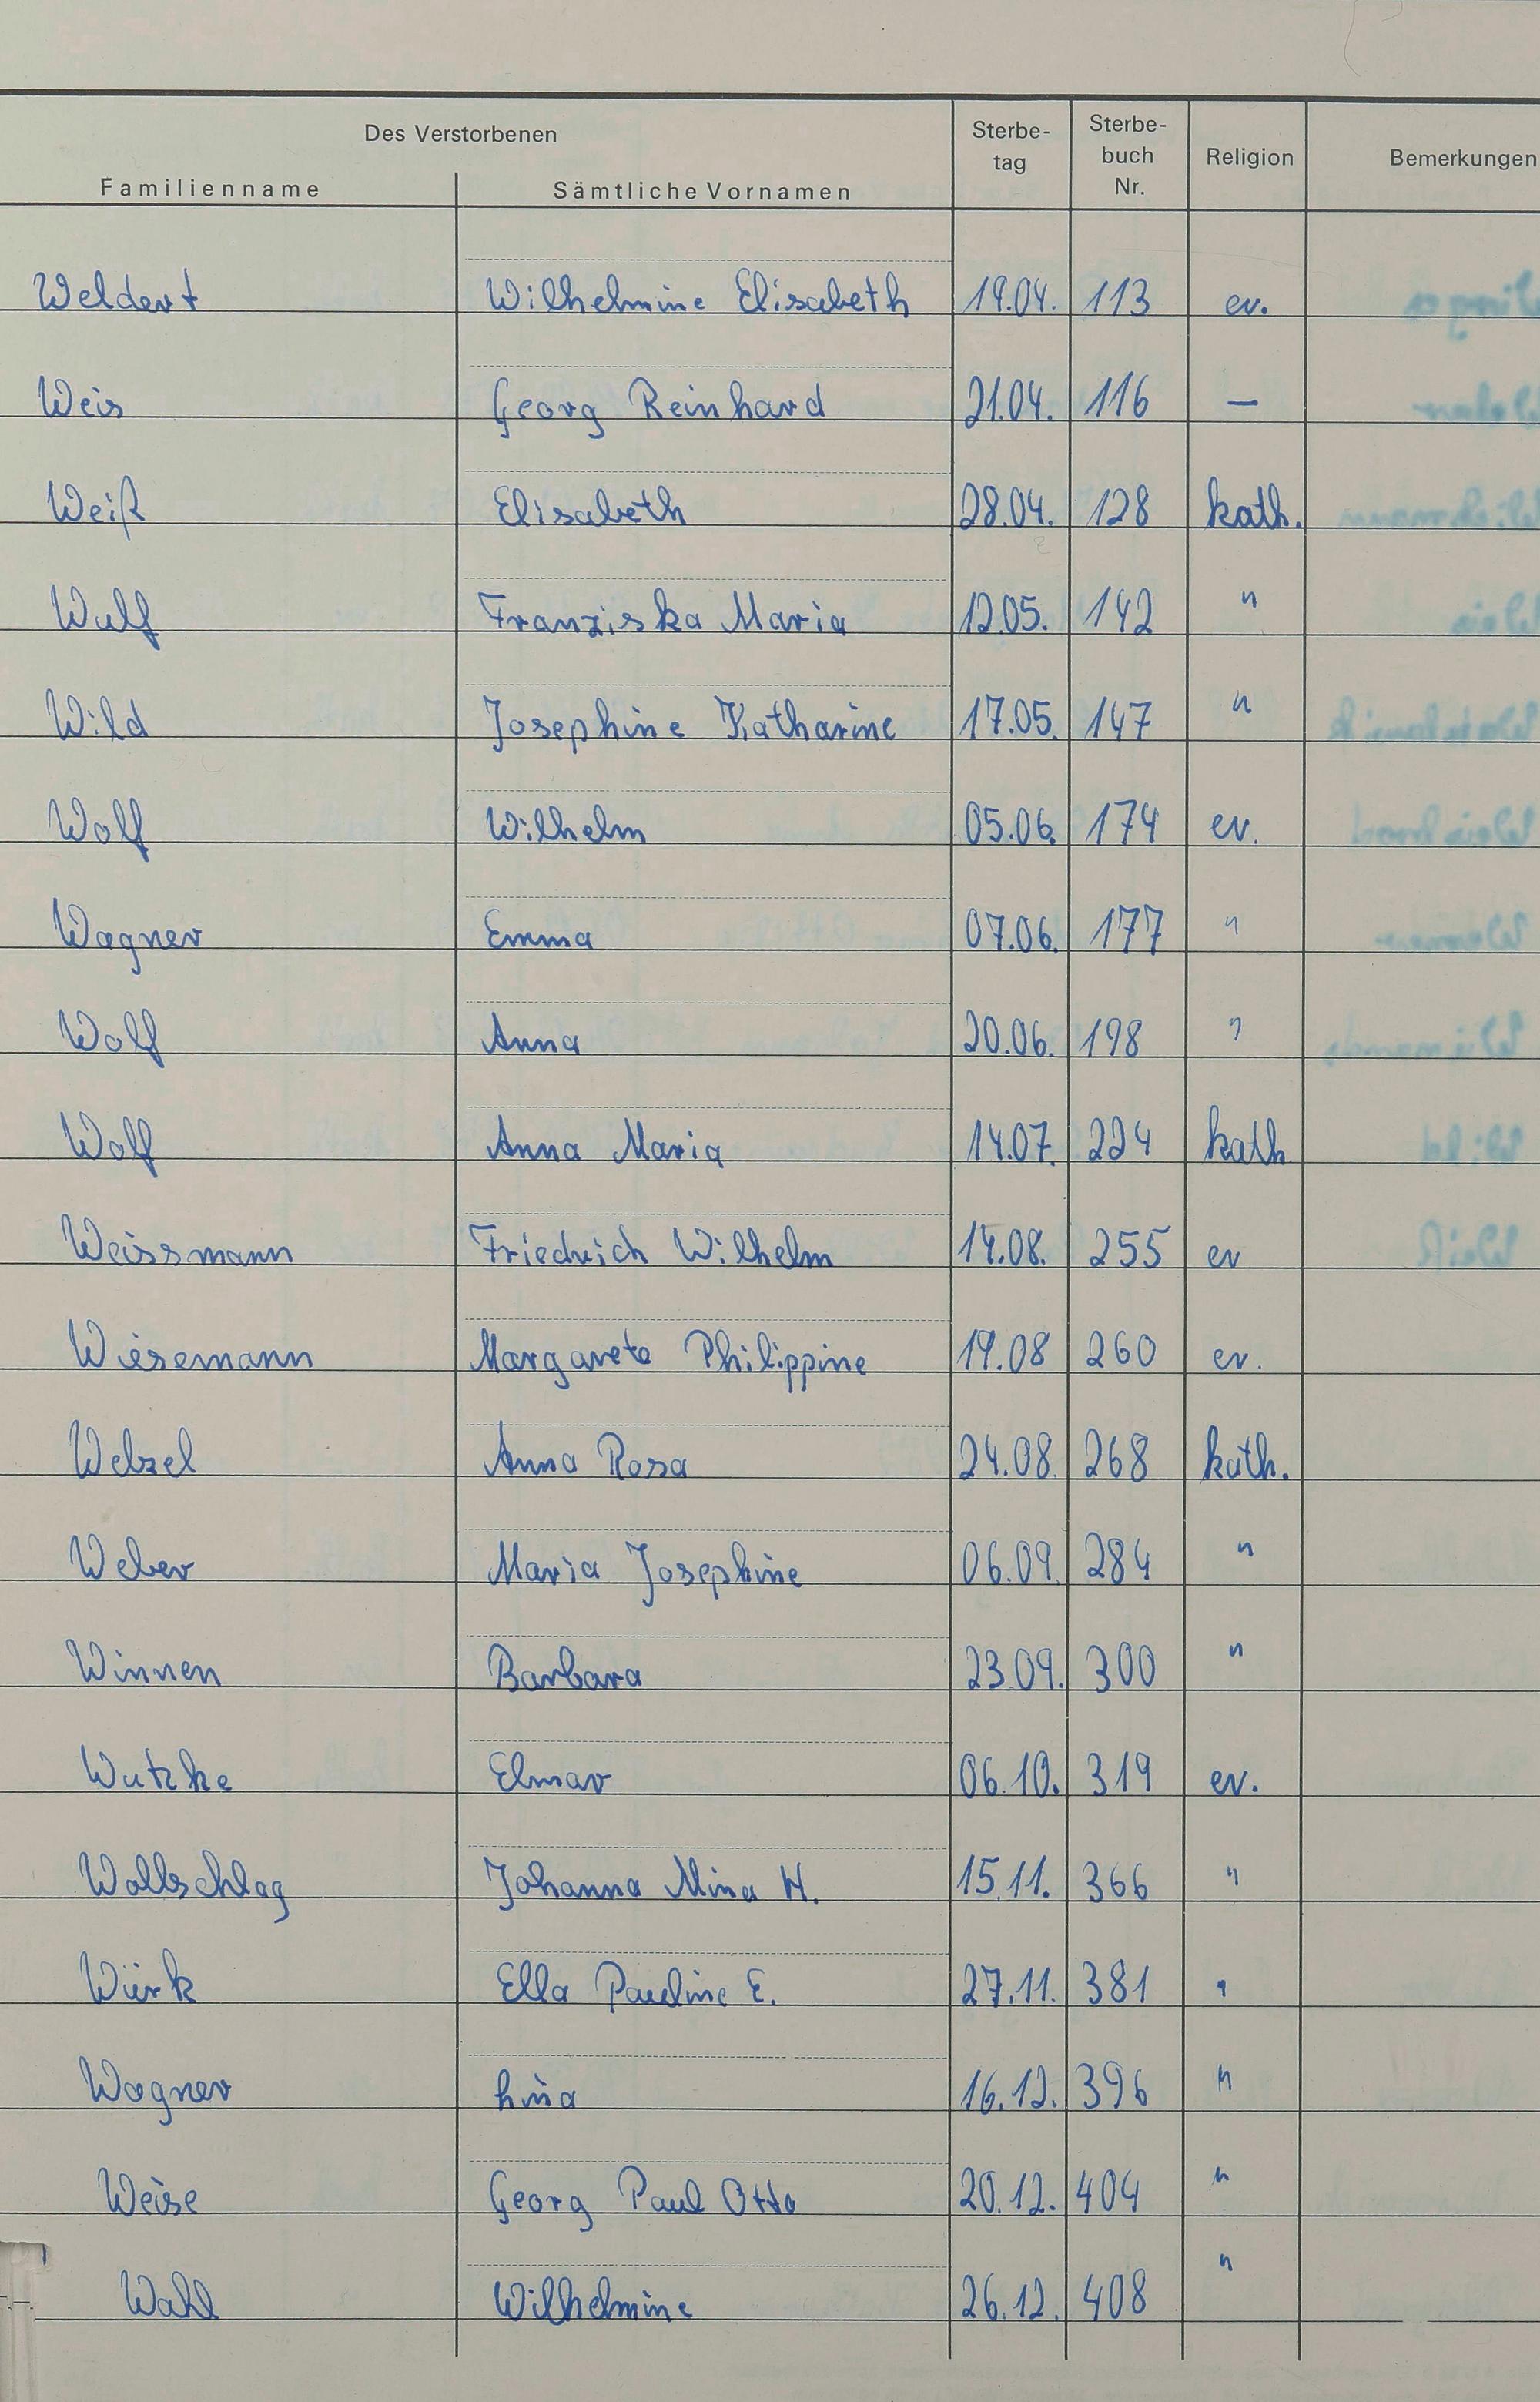 Des Verstorbenen
Familienname Sämtliche Vornamen Sterbe-tag Sterbe-buch Nr. Religion Bemerkungen
Weldert Wilhelmine Elisabeth 19.04. 113 ev.
Weis Georg Reinhard 21.04. 116 —
Weiß Elisabeth 28.04. 128 kath.
Wulf Franziska Maria 12.05. 142 "
Wild Josephine Katharine 17.05. 147 "
Wolf Wilhelm 05.06. 174 ev.
Wagner Emma 07.06. 177 "
Wolf Anna 20.06. 198 "
Wolf Anna Maria 14.07. 224 kath
Weissmann Friedrich Wilhelm 14.08. 255 ev
Wiesemann Margarete Philippine 19.08 260 ev.
Welzel Anna Rosa 24.08. 268 kath.
Weber Maria Josephine 06.09. 284 "
Winnen Barbara 23.09. 300 "
Wutzke Elmar 06.10. 319 ev.
Wollschlag Johanna Mina H. 15.11. 366 "
Würk Ella Pauline E. 27.11. 381 "
Wagner Lina 16.12. 396 "
Weise Georg Paul Otto 20.12. 404 "
Wahl Wilhelmine 26.12. 408 "